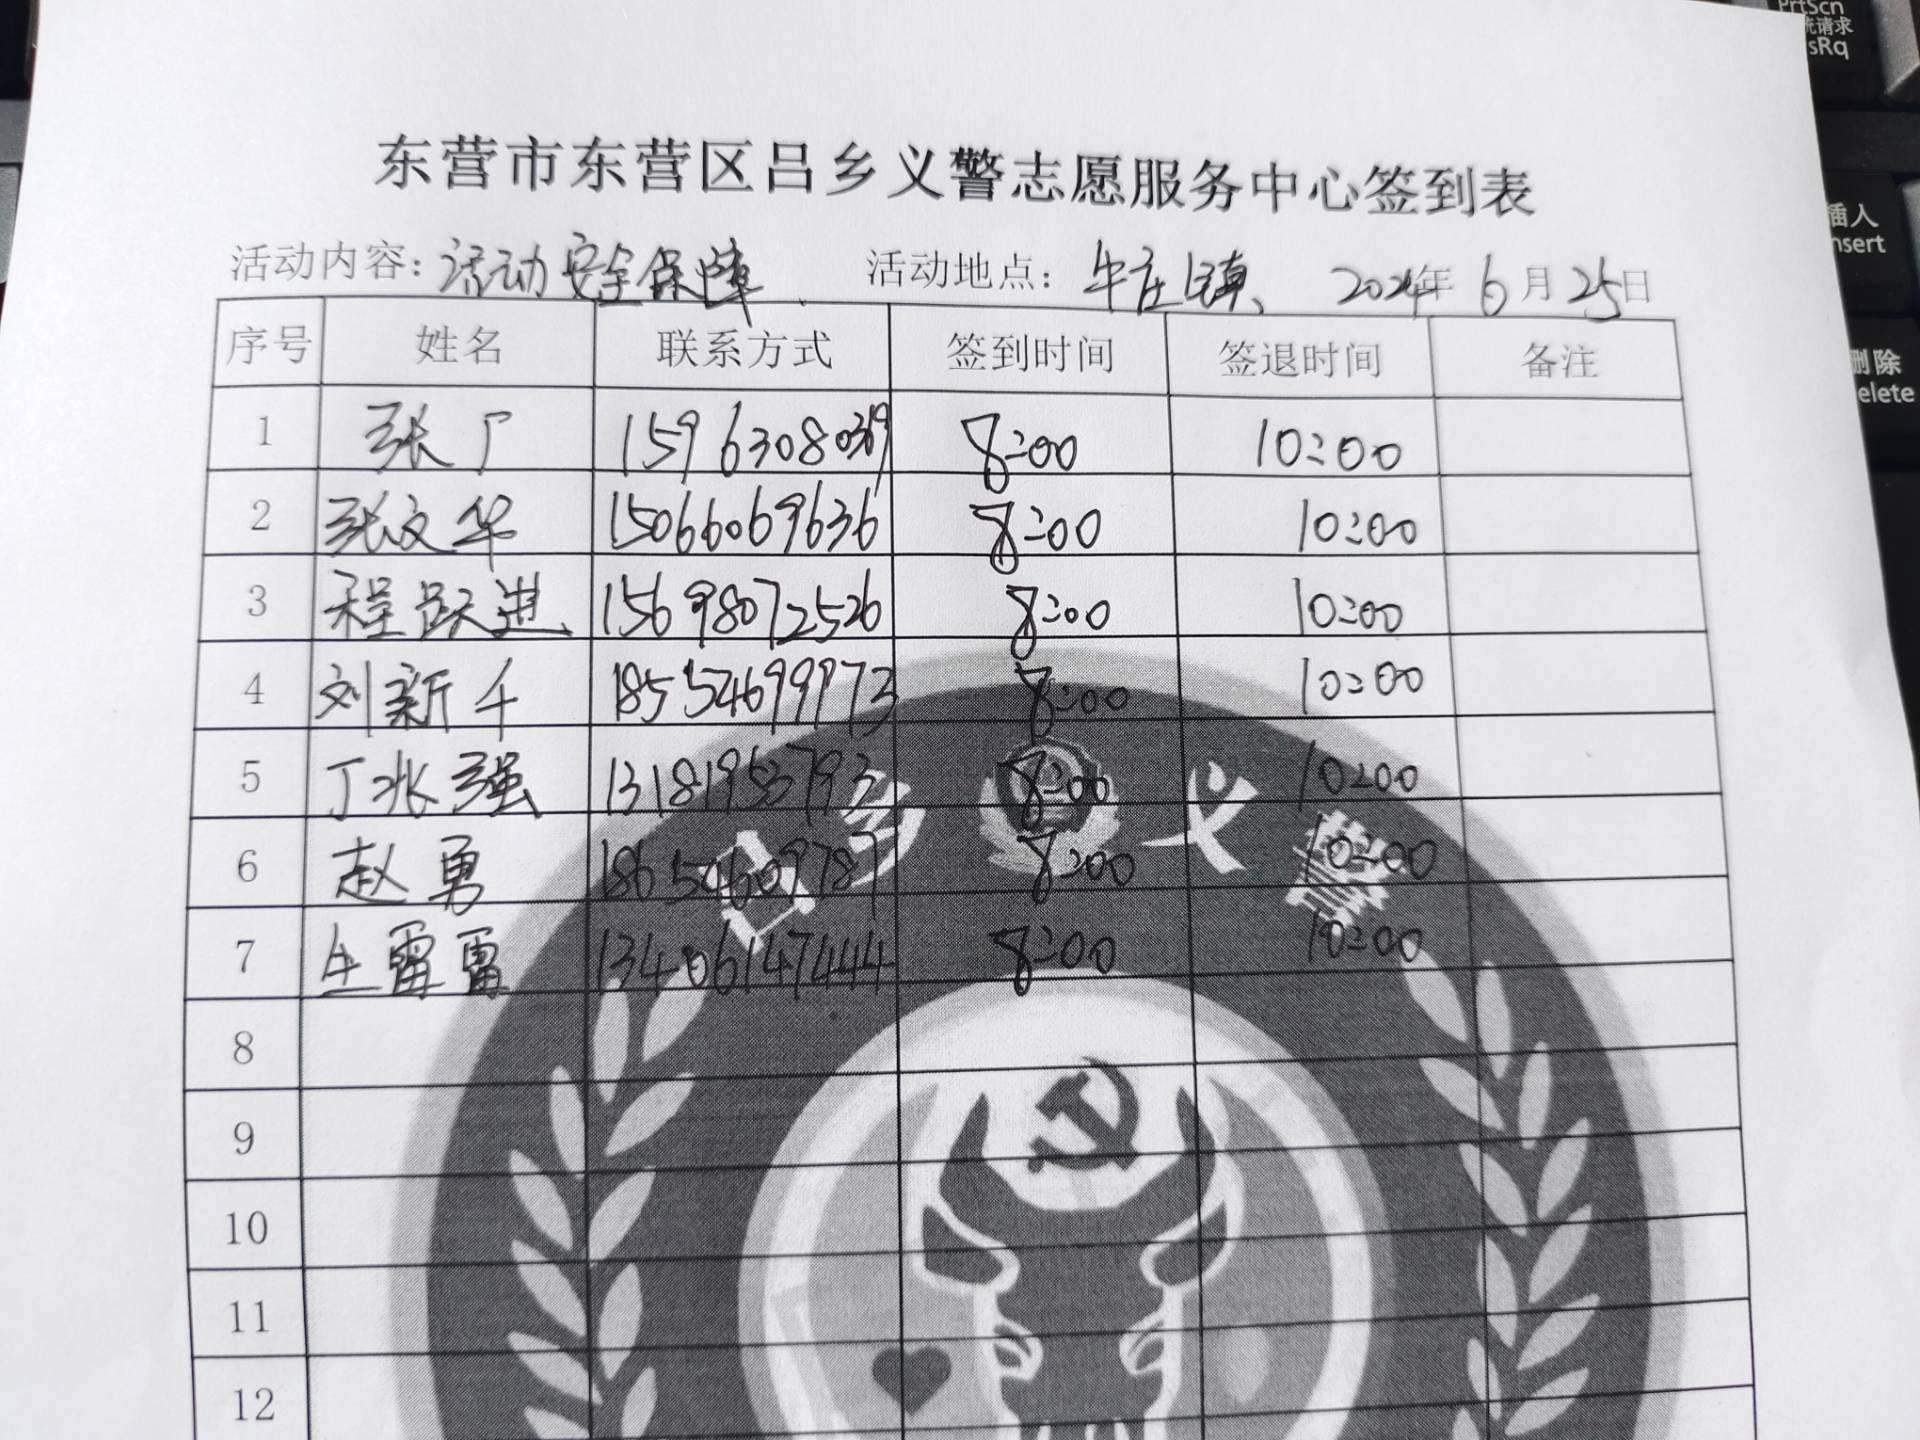 PrtScn
统请求
sRq
插入
nsert
删除
elete
东营市东营区吕乡义警志愿服务中心签到表
活动内容：活动安全保障 活动地点：牛庄镇、 2024年 6月25日
序号 姓名 联系方式 签到时间 签退时间 备注
1 张广 15963080369 8:00 10:00
2 张文华 15066069636 8:00 10:00
3 程跃进 15698072526 8:00 10:00
4 刘新千 18554699973 8:00 10:00
5 丁兆强 13181953793 8:00 10:00
6 赵勇 18654609787 8:00 10:00
7 生雷雷 13406147444 8:00 10:00
8
9
10
11
12
吕乡义警